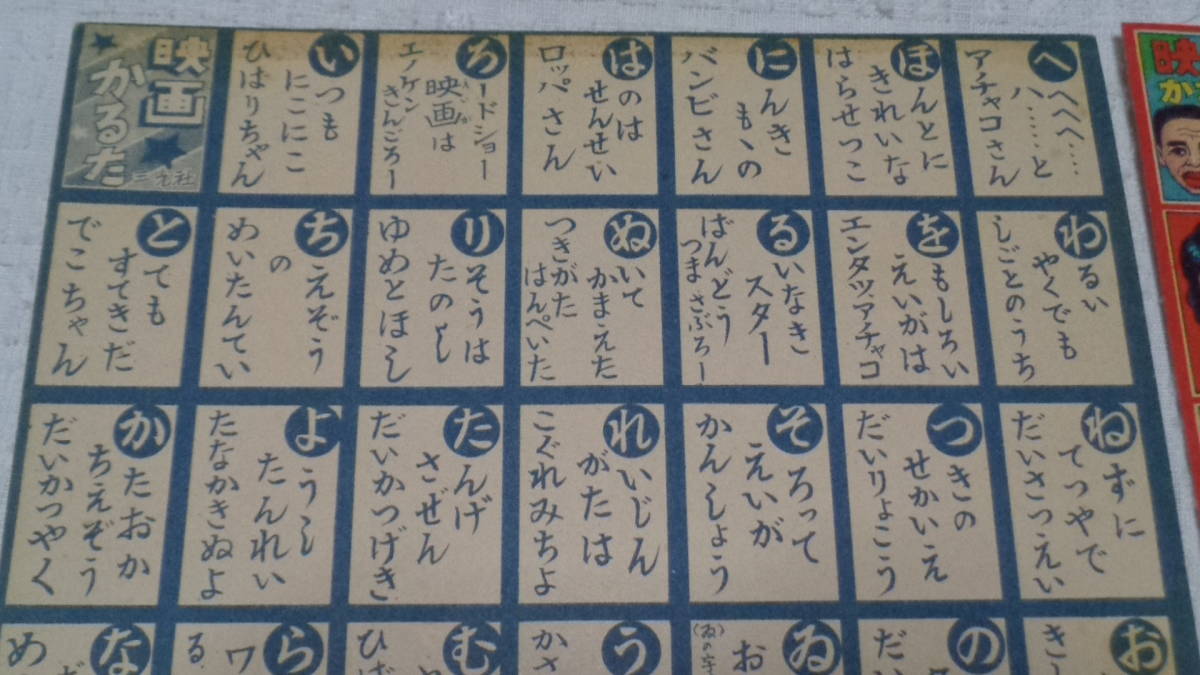 映画
かるた
三光社
いつも
にこにこ
ひはりちゃん
ろードショー
映画は
えいが
エノケン
きんごろー
はのは
せんせい
ロッパさん
にんき
もゝの
バンビさん
ほんとに
きれいな
はらせつこ
へへへへ…
ハ……と
アチャコさん
とても
すてきだ
でこちゃん
ちえぞう
の
めいたんてい
りそうは
たのし
ゆめとほし
ぬいて
かまえた
つきがた
はんぺいた
るいなき
スター
ばんどう
つまさぶろー
をもしろい
えいがは
エンタツアチャコ
わるい
やくでも
しごとのうち
かたおか
ちえぞう
だいかつやく
ようし
たんれい
たなかきぬよ
たんげ
さぜん
だいかつげき
れいじん
がたは
こぐれみちよ
そろって
えいが
かんしょう
つきの
せかいえ
だいりょこう
ねずに
てつやで
だいさつえい
な
め
ら
ワ
る
む
ひば
う
かさ
ゐ
お
(ゐの字
の
だい
お
き
映
か